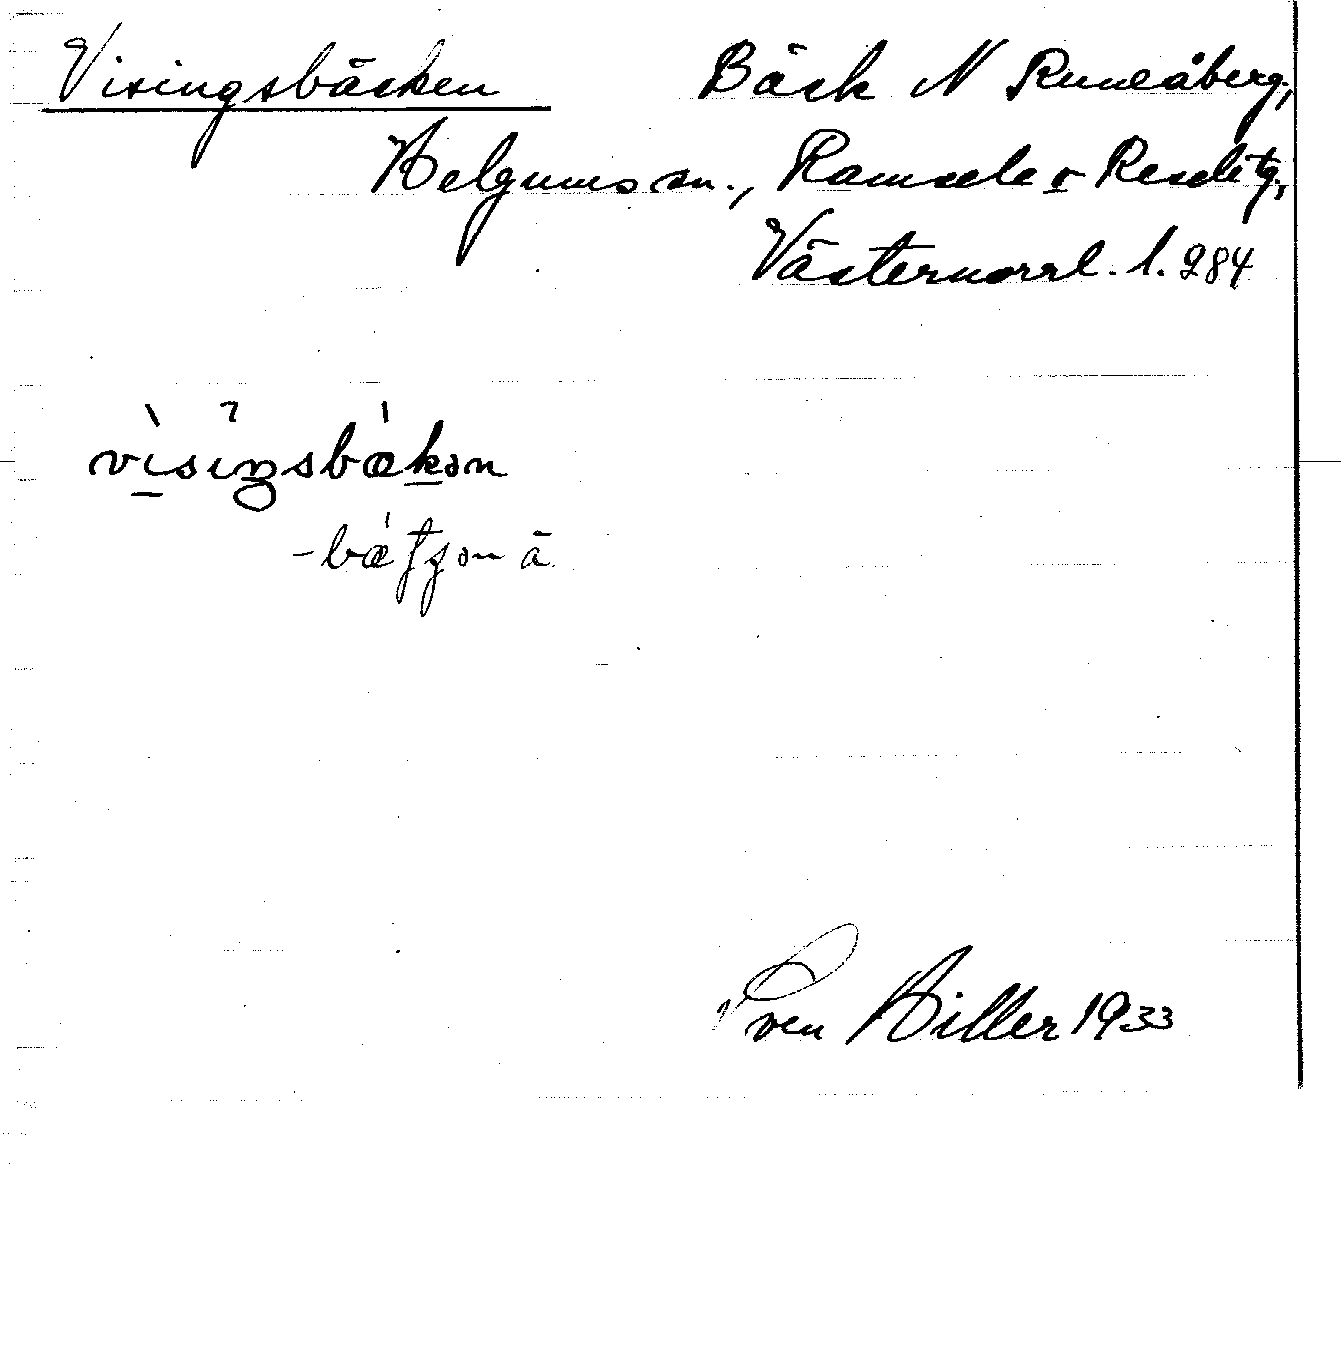 Visingsbäcken Bäck N Runeåberg,
Helgums sn., Ramsele o Resele tg,
Västernorrl. l. 284
visiŋsbækən
-bæ ən ä
Sven Hiller 1933